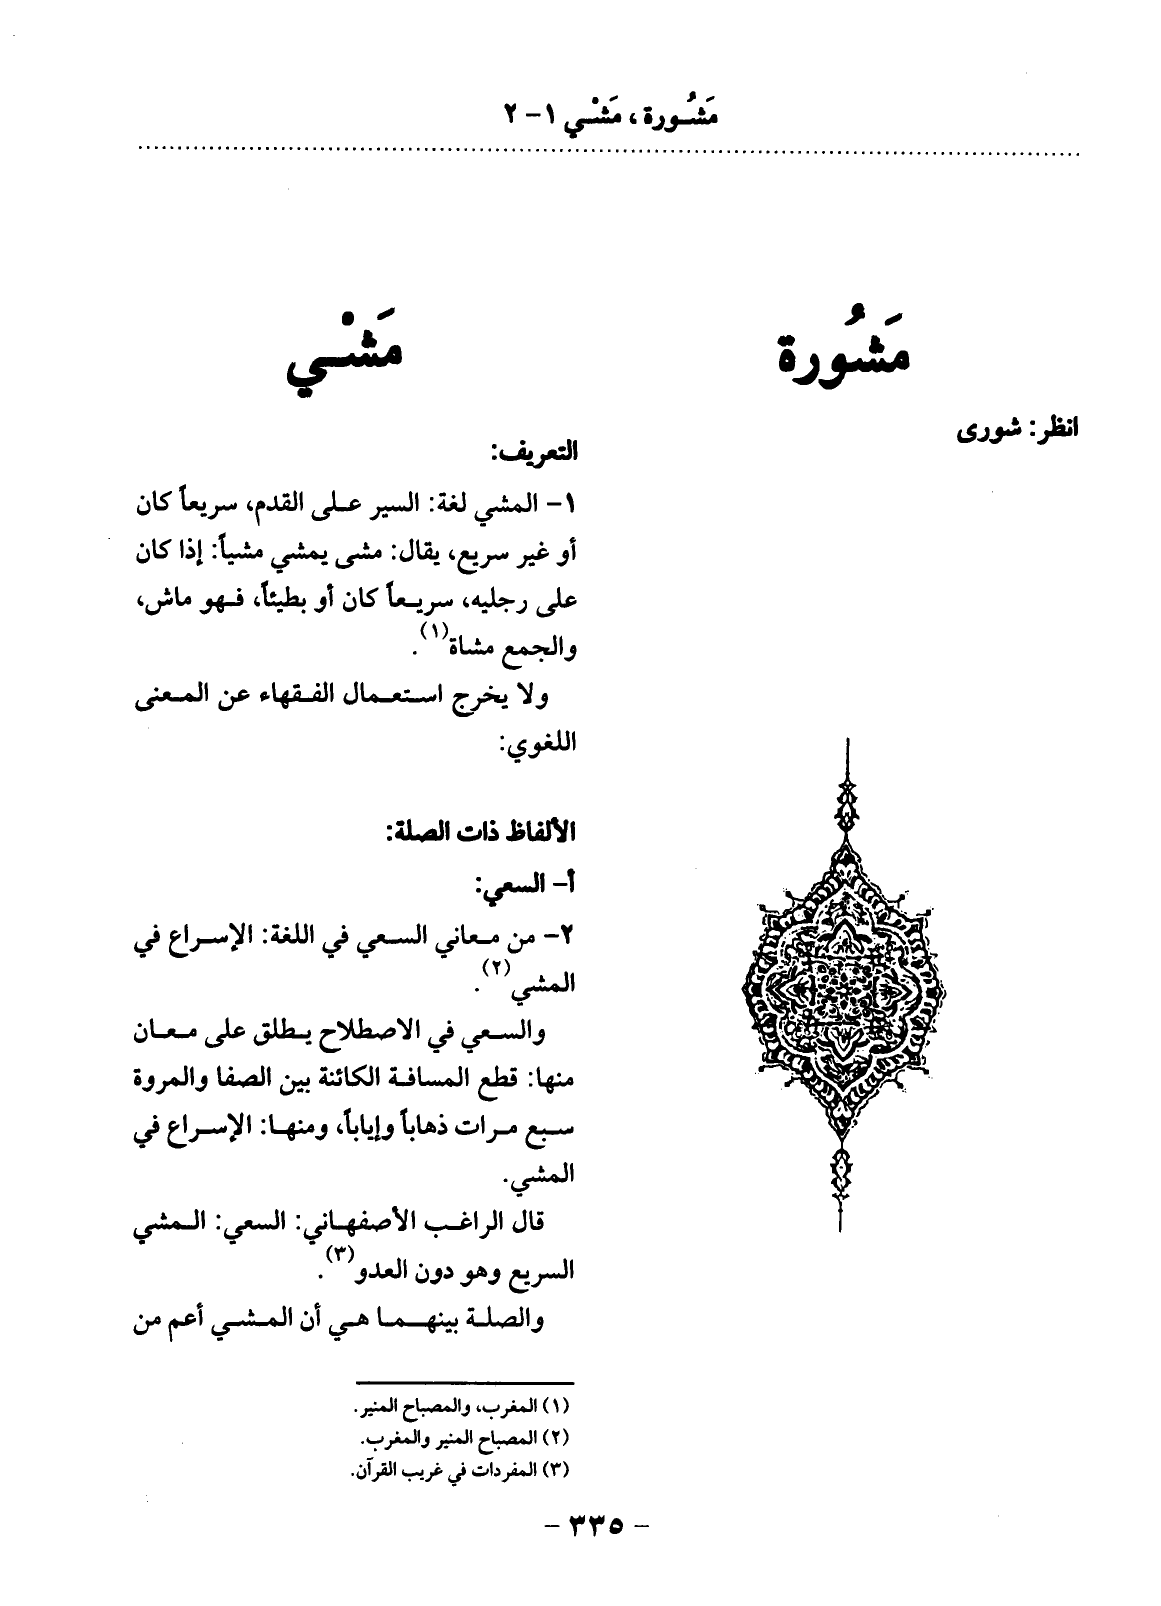 مَشُورة، مَشْي ١- ٢
مَشُورة
انظر: شورى
مَشْي
التعريف:
١- المشي لغة: السير على القدم، سريعاً كان
أو غير سريع، يقال: مشى يمشي مشياً: إذا كان
على رجليه، سريعاً كان أو بطيئاً، فهو ماش،
والجمع مشاة(١).
ولا يخرج استعمال الفقهاء عن المعنى
اللغوي:
الألفاظ ذات الصلة:
أ- السعي:
٢- من معاني السعي في اللغة: الإسراع في
المشي(٢).
والسعي في الاصطلاح يطلق على معان
منها: قطع المسافة الكائنة بين الصفا والمروة
سبع مرات ذهاباً وإياباً، ومنها: الإسراع في
المشي.
قال الراغب الأصفهاني: السعي: المشي
السريع وهو دون العدو(٣).
والصلة بينهما هي أن المشي أعم من
(١) المغرب، والمصباح المنير.
(٢) المصباح المنير والمغرب.
(٣) المفردات في غريب القرآن.
- ٣٣٥ -